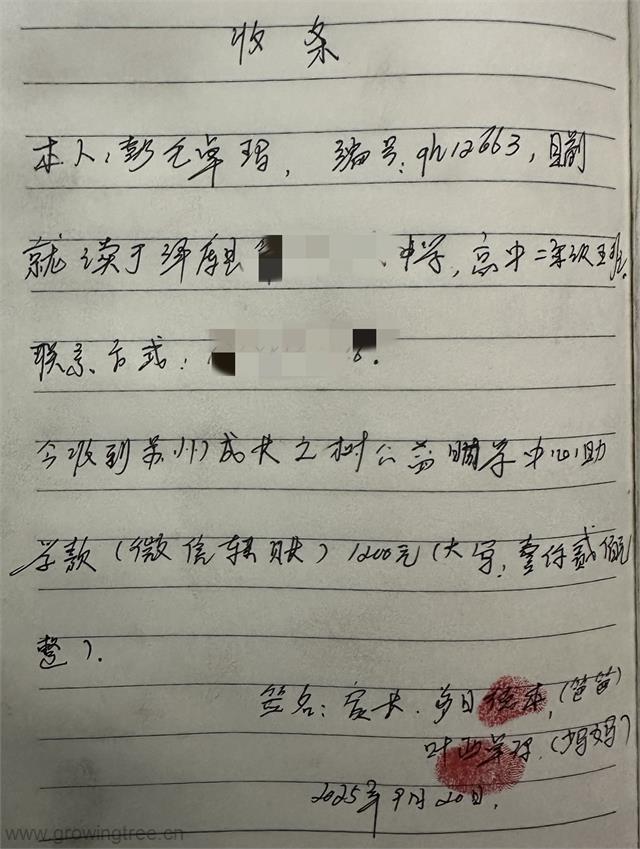 收条
本人:彭毛卓玛, 编号:qh12663, 目前
就读于泽库县 中学,高中二年级五班.
联系方式: 6.
今收到苏州成长之树公益助学中心助
学款(微信转账)1200元(大写:壹仟贰佰元
整).
签名:家长. 多日 本,(爸爸)
叶西卓玛.(妈妈)
2025年9月20日.
www.growingtree.cn